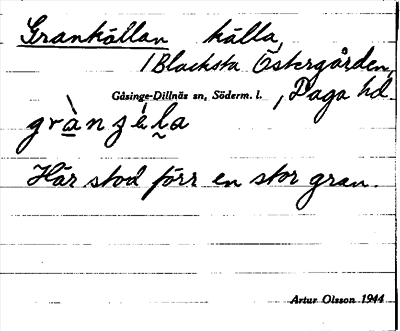 Grankällan källa,
/Blacksta Östergården,
Gåsinge-Dillnäs sn, Söderm. l. , Daga hd.
gràn𝑧éla
Här stod förr en stor gran.
Artur Olsson 1944